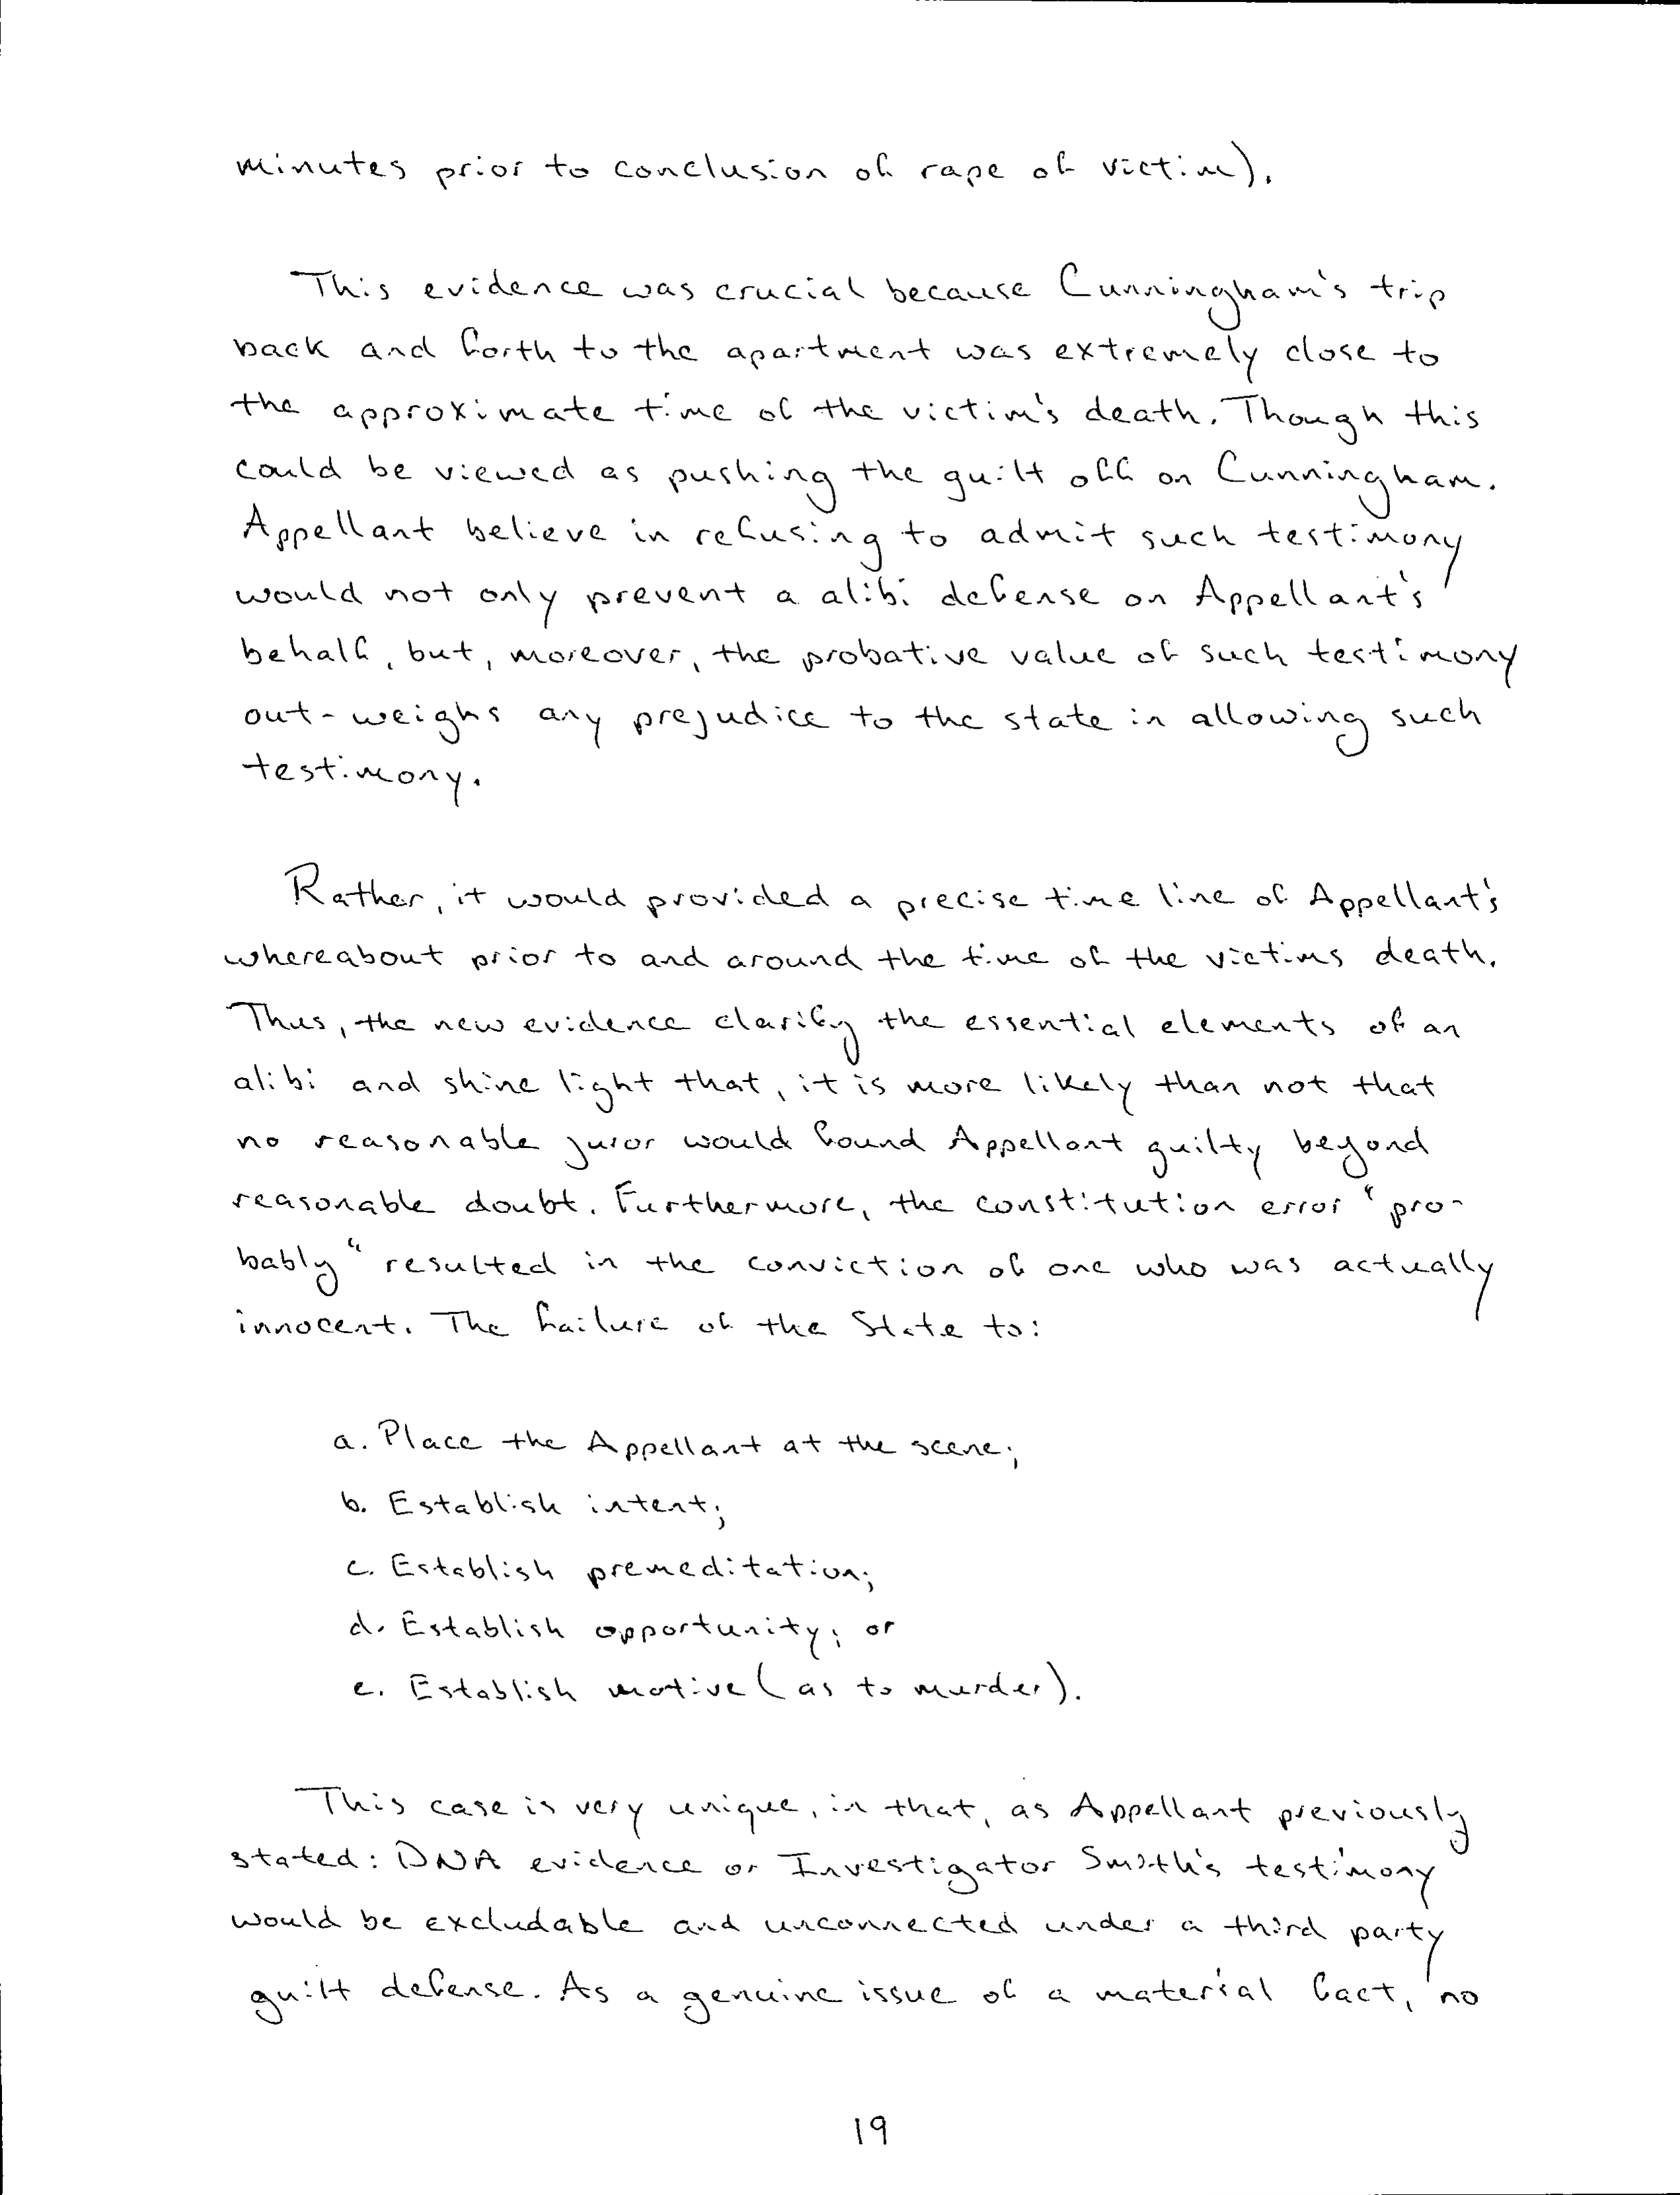 minutes prior to conclusion of rape of victim).
This evidence was crucial because Cunningham's trip
back and forth to the apartment was extremely close to
the approximate time of the victim's death. Though this
could be viewed as pushing the guilt off on Cunningham.
Appellant believe in refusing to admit such testimony
would not only prevent a alibi defense on Appellant's
behalf, but, moreover, the probative value of such testimony
out-weighs any prejudice to the state in allowing such
testimony.
Rather, it would provided a precise time line of Appellant's
whereabout prior to and around the time of the victims death.
Thus, the new evidence clarify the essential elements of an
alibi and shine light that, it is more likely than not that
no reasonable juror would found Appellant guilty beyond
reasonable doubt. Furthermore, the constitution error "pro-
bably" resulted in the conviction of one who was actually
innocent. The failure of the State to:
a. Place the Appellant at the scene;
b. Establish intent;
c. Establish premeditation;
d. Establish opportunity; or
e. Establish motive (as to murder).
This case is very unique, in that, as Appellant previously
stated: DNA evidence or Investigator Smith's testimony
would be excludable and unconnected under a third party
guilt defense. As a genuine issue of a material fact, no
19